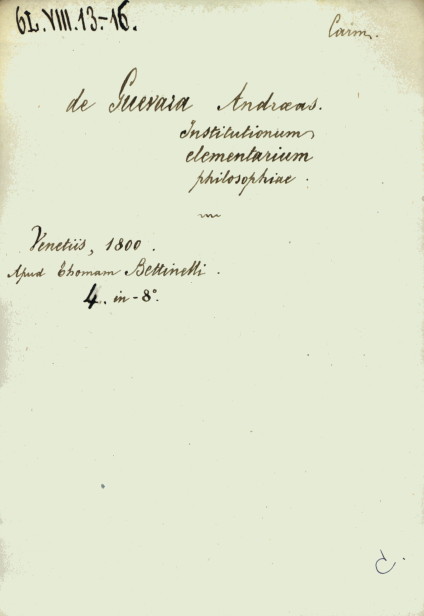 6L.VIII.13-16.
Caim.
de Guevara Andraeas.
Institutionum
elementarium
philosophiae.
Venetiis, 1800.
Apud Thomam Bettinelli.
4. in-8°.